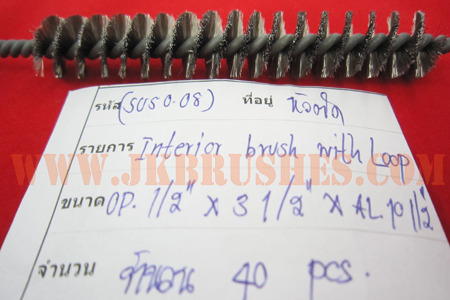 รหัส (SUS 0.08) ที่อยู่
รายการ Interior brush with Loop
WWW.JKBRUSHES.COM
ขนาด OP. 1/2" x 3 1/2" x AL 10 1/2"
จำนวน 40 pcs.